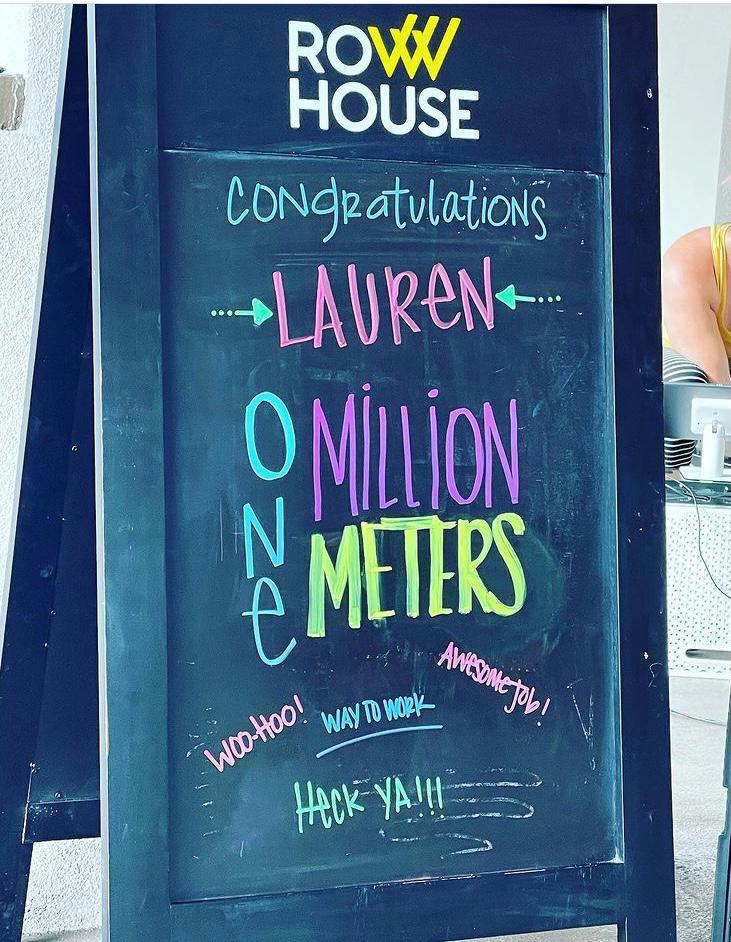 ROW
HOUSE
CONgRatulations
LAUREN
ONe
MiLLiON
METERS
AWesome Job!
WOO-HOO!
WAY TO WORK
HecK YA!!!